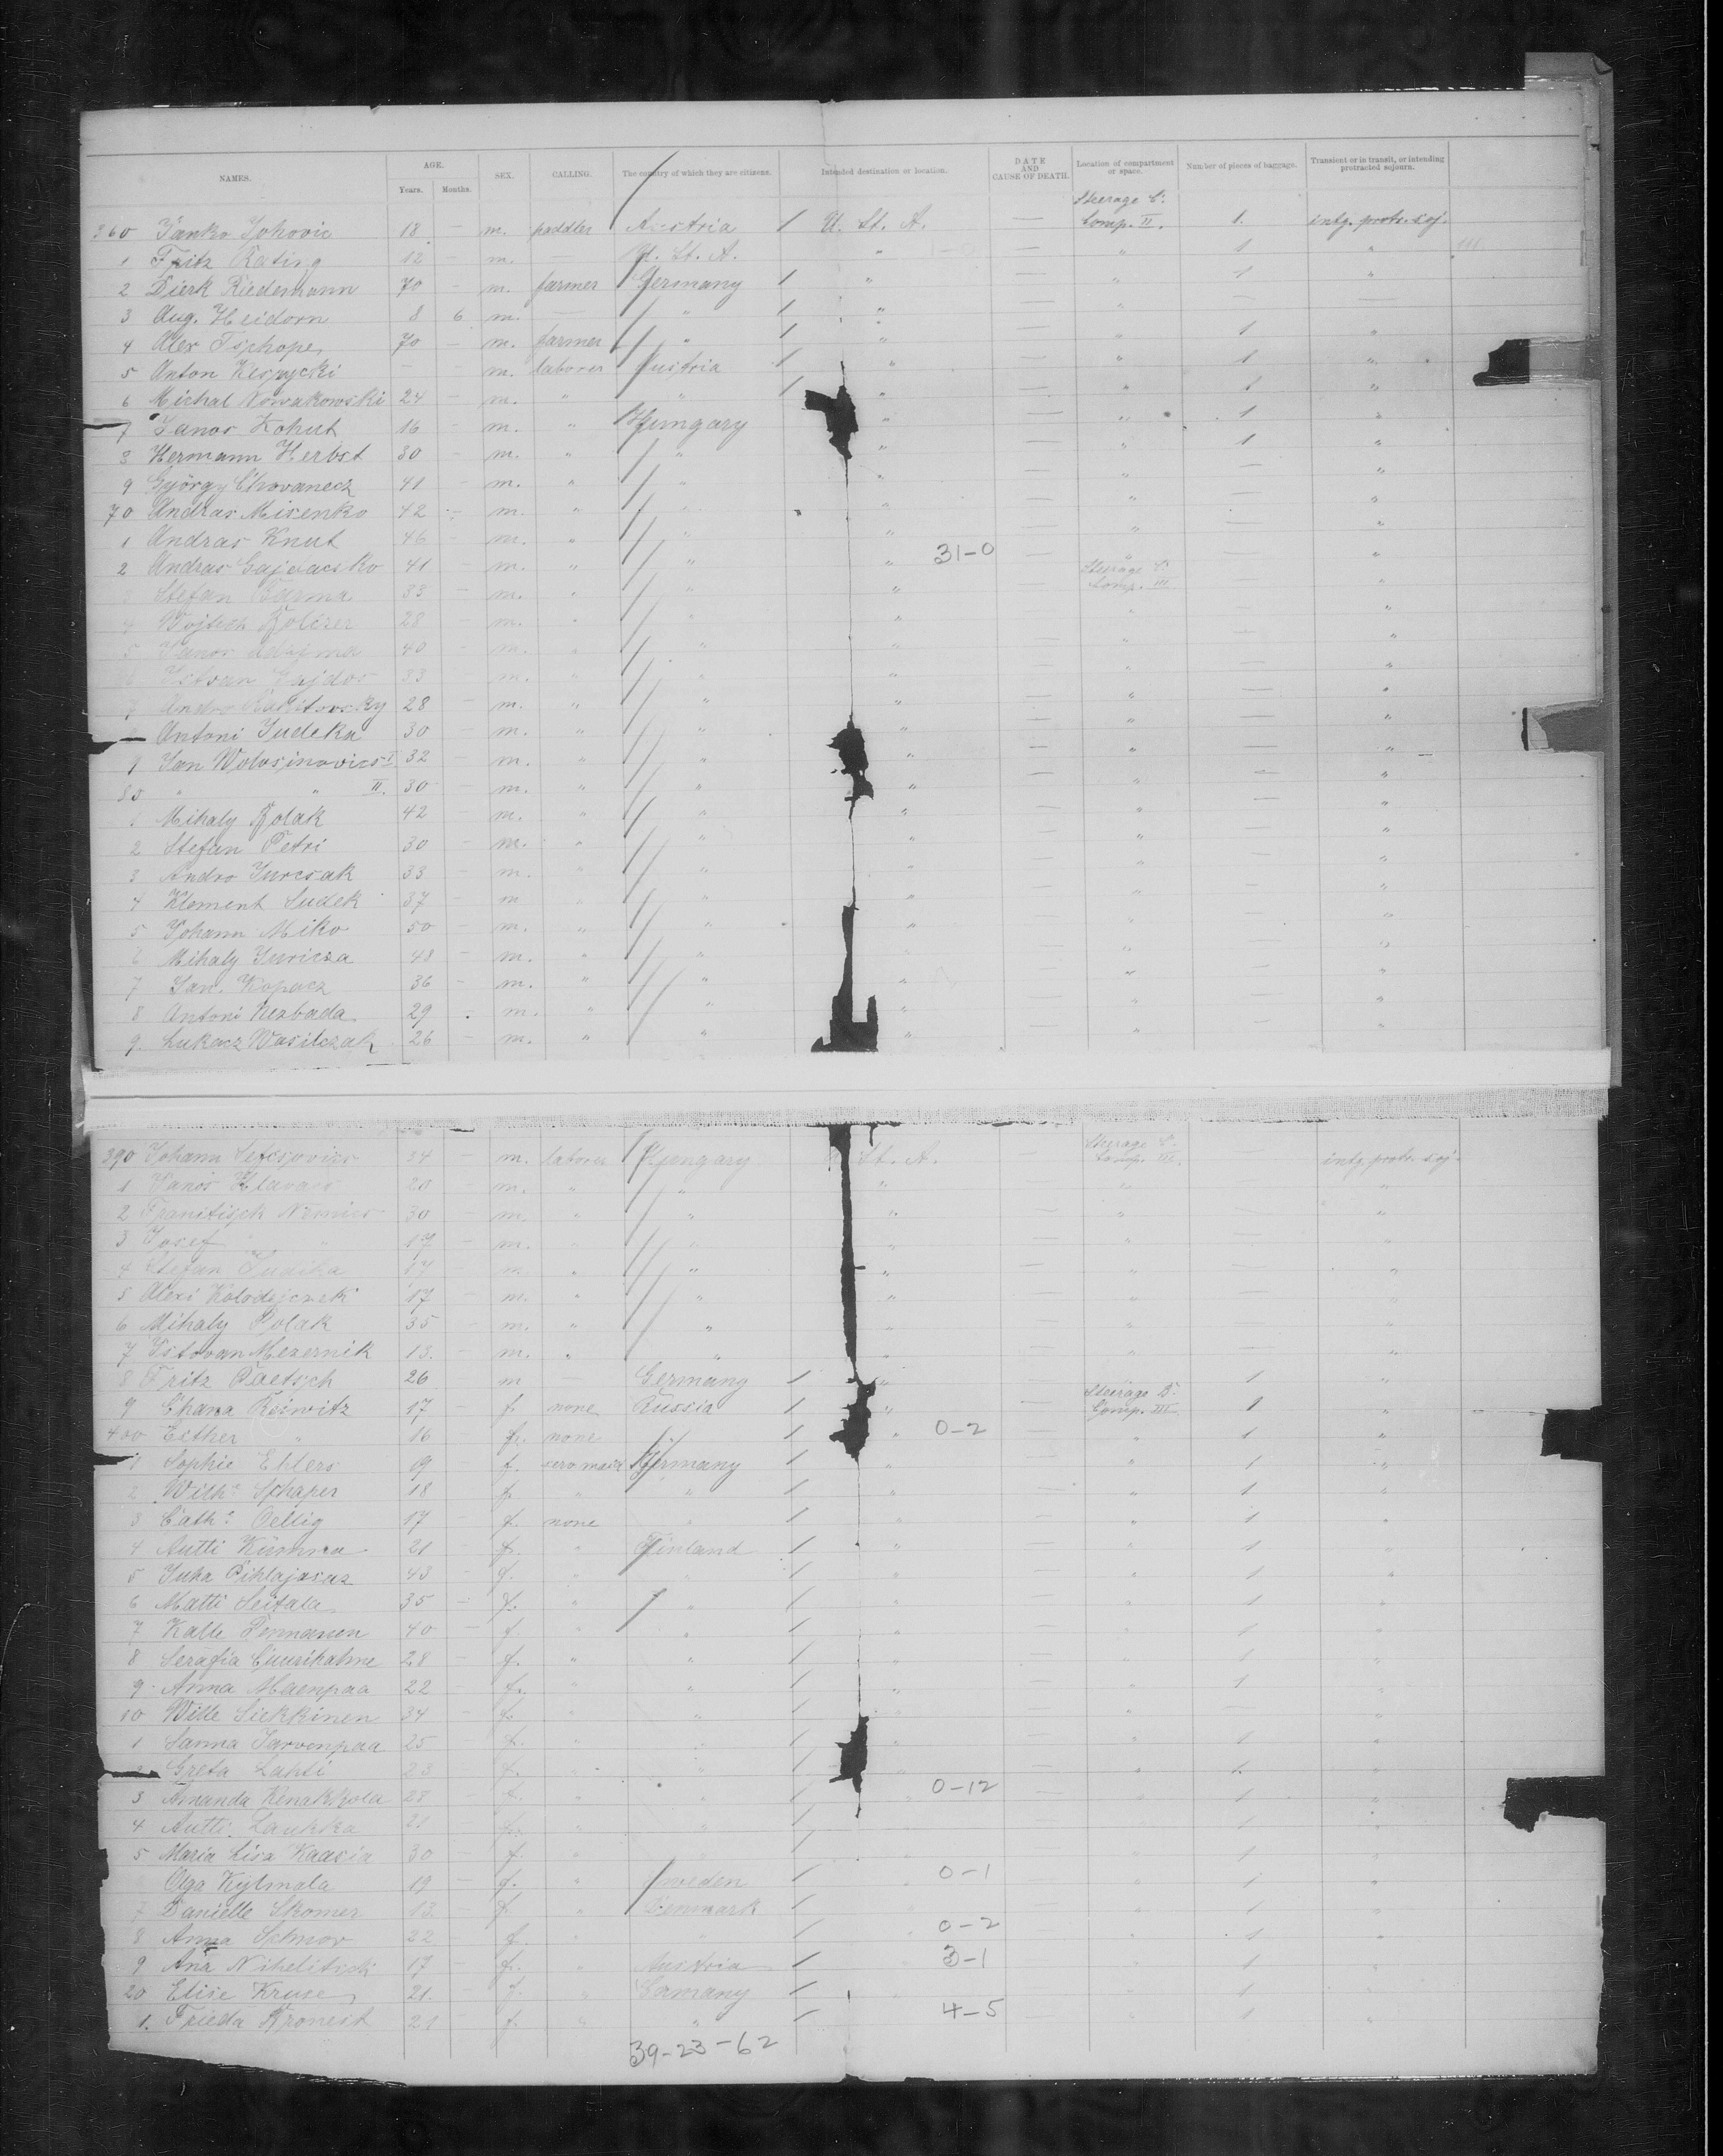 NAMES. AGE. Years. Months. SEX. CALLING. The country of which they are citizens. Intended destination or location. DATE AND CAUSE OF DEATH. Location of compartment or space. Number of pieces of baggage. Transient or in transit, or intending protracted sojourn.
360 Janko Johovic 18 - m. peddler Austria 1 U. St. A. — Steerage C. Comp. II. 1. intg. protr. soj.
1 Fritz Rating 12 - m. — U. St. A. " — " 1 "
2 Dierk Riedemann 70 - m. farmer Germany 1 " — " 1 "
3 Aug. Heidorn 8 6 m. — " 1 " — " — —
4 Alex 70 - m. farmer " 1 " — " 1 "
5 Anton - - m. laborer Austria 1 " — " 1 "
6 Michal Nowakowski 24 - m. " " 1 " — " 1 "
7 Janos Kohut 16 - m. " Hungary " — " 1 "
8 Hermann Herbst 30 - m. " " " — " 1 "
9 György Chovanecz 41 - m. " " " — " — "
70 Andras Misenko 42 - m. " " " — " — "
1 Andras Knut 46 - m. " " " — " — "
2 Andras 41 - m. " " " 31-0 — " — "
3 Stefan 33 - m. " " " — Steerage C. Comp. III — "
4 Wojtech 28 - m. " " " — " — "
5 Janos 40 - m. " " " — " — "
Istvan Hajdos 33 - m. " " " — " — "
7 Andro 28 - m. " " " — " — "
Antoni Judeka 30 - m. " " " — " — "
9 Jan Wolosinovics I. 32 - m. " " " — " — "
80 " " II. 30 - m. " " " — " — "
1 Mihaly Polak 42 - m. " " " — " — "
2 Stefan Petri 30 - m. " " " — " — "
3 Andro Jurcsak 33 - m. " " " — " — "
4 Klement Sudek 37 - m " " " — " — "
5 Johann Miko 50 - m. " " " — " — "
6 Mihaly Juricza 48 - m. " " " — " — "
7 Jan. Kopacz 36 - m. " " " — " — "
8 Antoni Nezbada 29 - m. " " " — " — "
9. Lukacz Wasilczak 26 - m. " " " — " — "
390 Johann 34 - m. laborer Hungary St. A. — Steerage C. Comp. III. — intg. protr. soj.
1 Janos Hlavacs 20 - m. " " " — " — "
2 30 - m. " " " — " — "
3 Josef " 17 - m. " " " — " — "
4 Stefan Judika 17 - m. " " " — " — "
5 Alexi Kolodejczek 17 - m. " " " — " — "
6 Mihaly Polak 35 - m. " " " — " — "
7 Istovan Mezernik 13. - m. " " " — " — "
8 Fritz Paetsch 26 m — Germany 1 " — 1 "
9 Chana Reiwitz 17 - f. none Russia 1 " — Steerage B. Comp. III 1 "
400 Esther " 16 - f. none " 1 " 0-2 — " 1 "
1 Sophie Ehlers 19 - f. serv maid Germany 1 " — " 1 "
2 Wilh. Schaper 18 - f. " " 1 " — " 1 "
3 Cath. Oellig 17 - f. none " 1 " — " 1 "
4 Antti 21 - f. " Finland 1 " — " 1 "
5 Juha 43 - f. " " 1 " — " 1 "
6 Matti Seitala 35 - f. " " 1 " — " 1 "
7 Kalle Pennanen 40 - f. " " 1 " — " 1 "
8 Serafia 28 - f. " " 1 " — " 1 "
9 Anna Maenpaa 22 - f. " " 1 " — " 1 "
10 Wille Siekkinen 34 - f. " " 1 " — " — "
1 Sanna Jarvenpaa 25 - f. " " 1 " — " 1 "
2 Greta Lahti 23 - f. " " 1 " — " 1. "
3 Amanda 28 - f. " " 1 " 0-12 — " 1 "
4 Antti Laukka 21 - f. " " 1 " — " 1 "
5 Maria Lisa Kaasia 30 - f. " 1 " — " 1 "
Olga Kylmala 19 - f. " Sweden 1 " 0-1 — " 1 "
7 Danielle Skomer 13. - f. " Denmark 1 — " 1 "
8 Anna 22 - f. " " 1 " 0-2 — " 1 "
9 Ana 17 - f. " Austria 1 3-1 — " 1 "
20 Elise Kruse 21. - f. " Germany 1 " — " 1 "
1. Frieda 21 - f. " " 1 4-5 — " 1 "
39-23-62